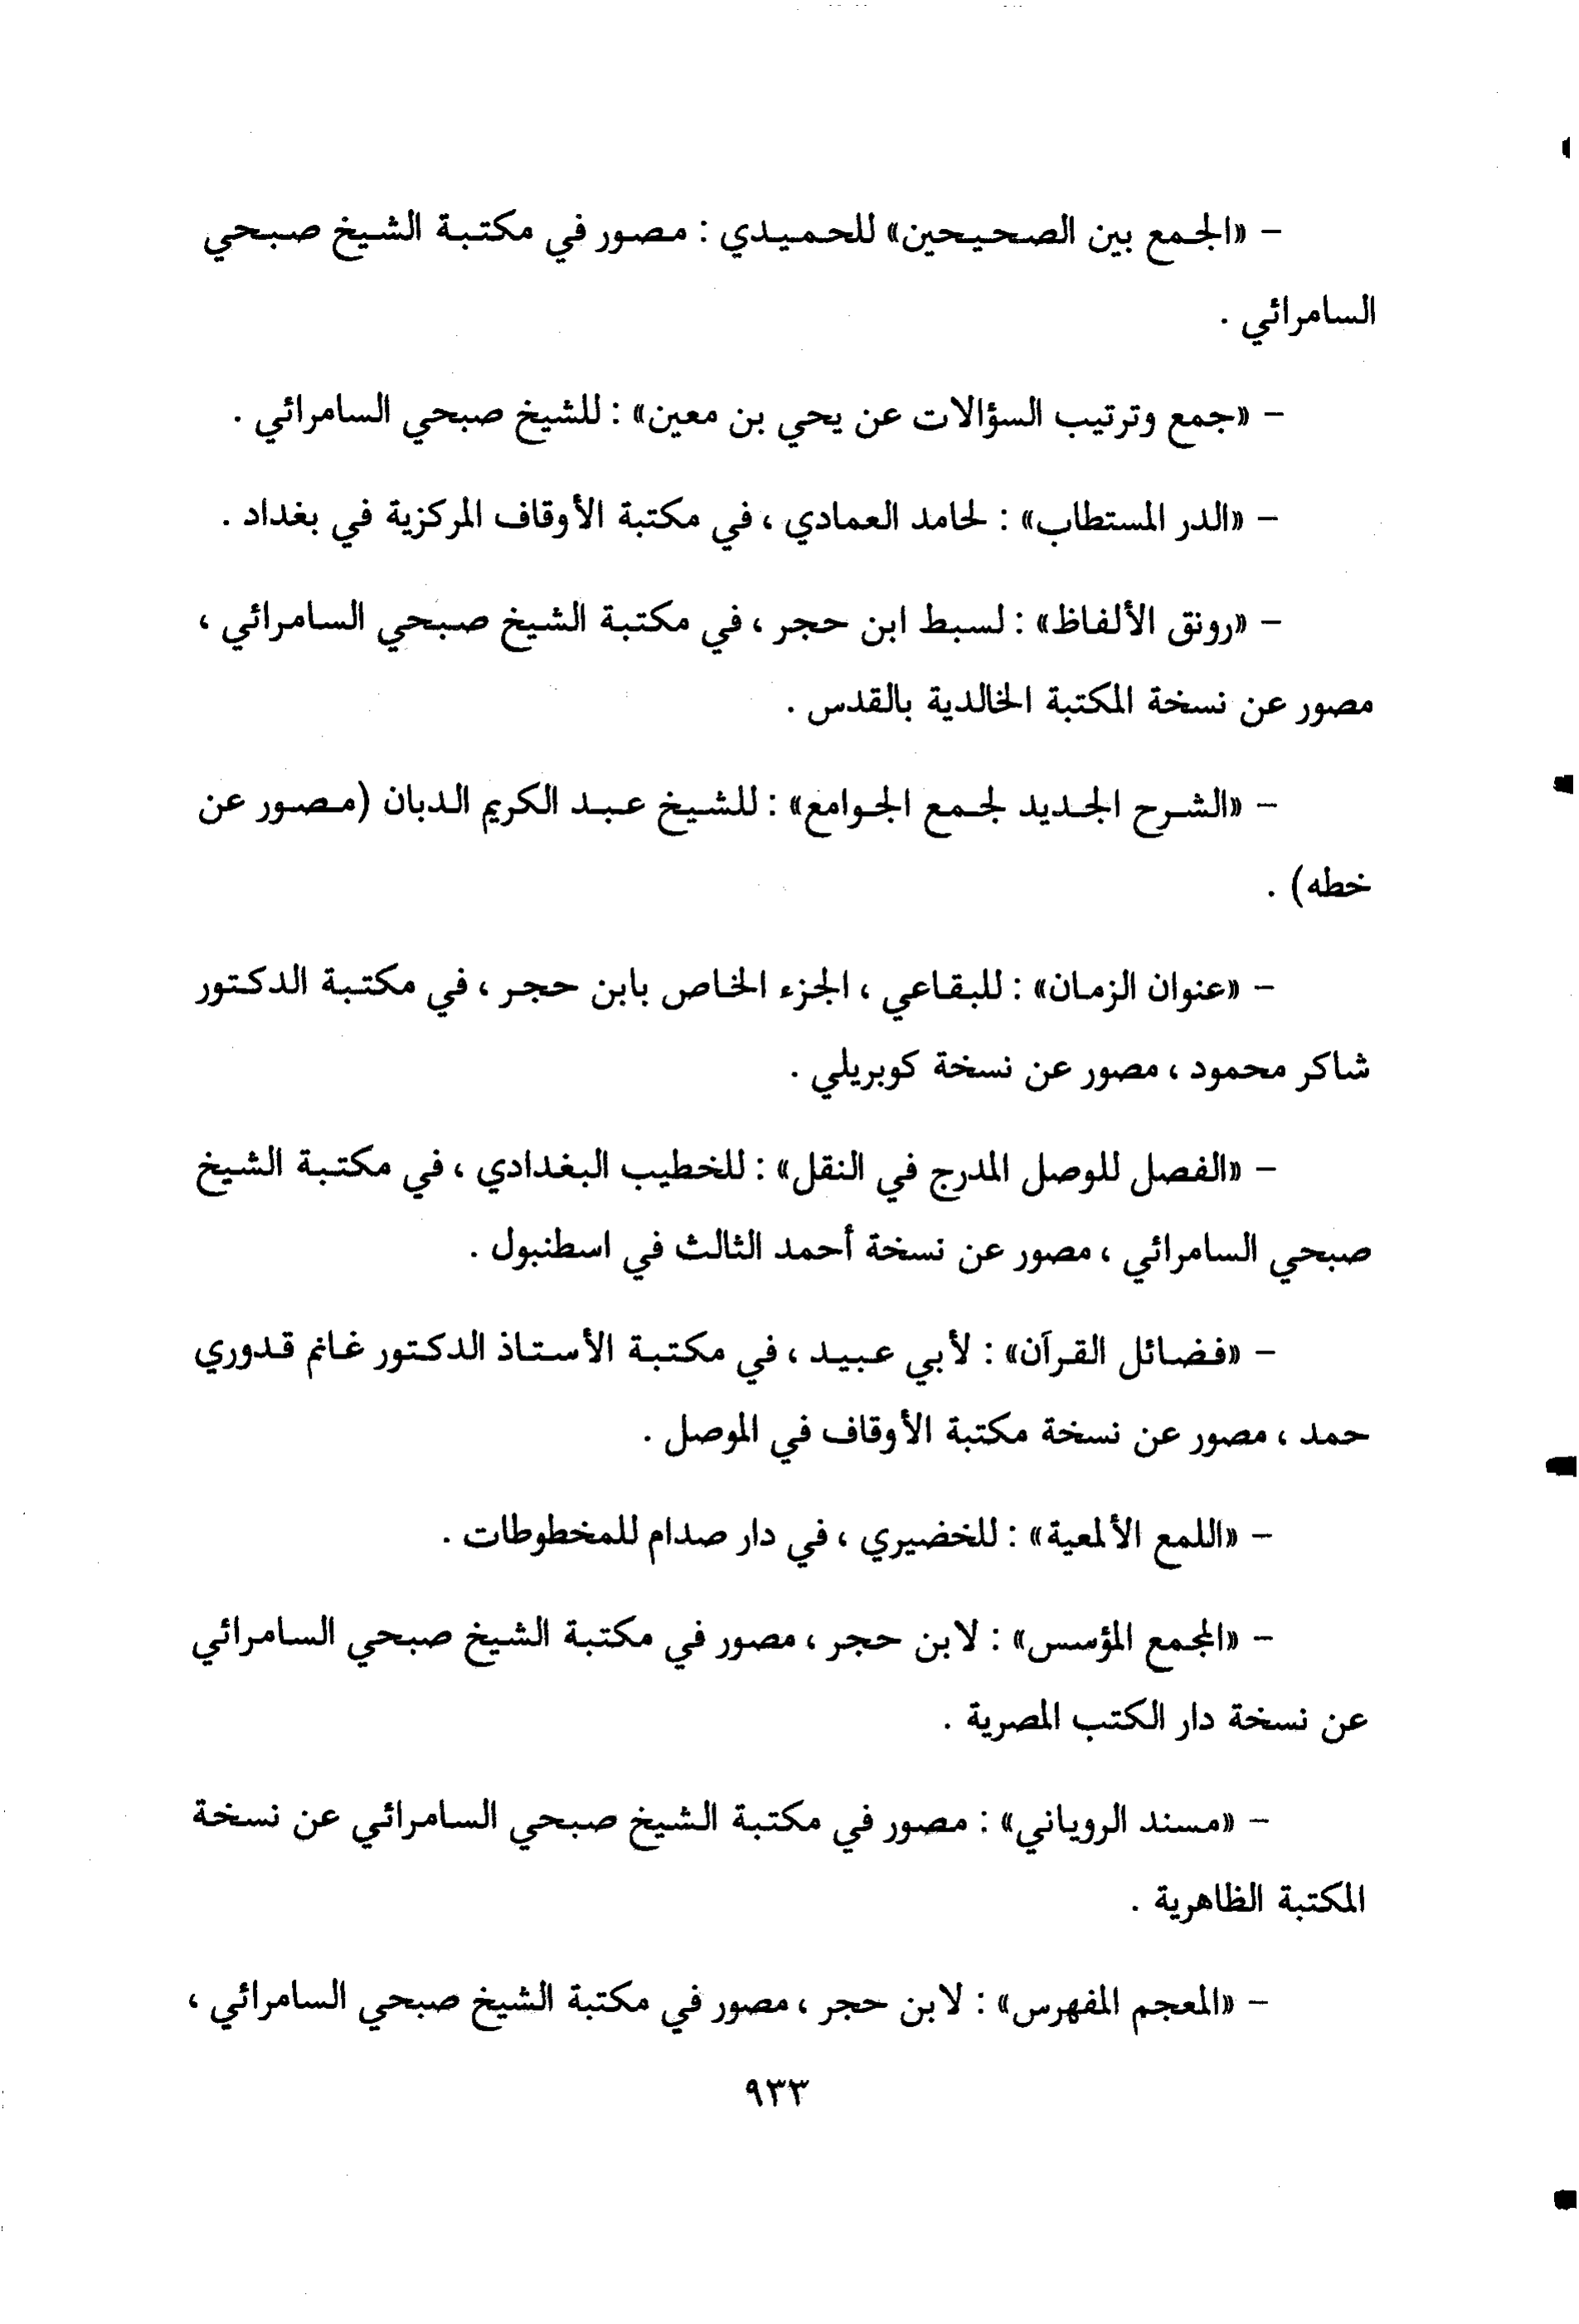 – «الجمع بين الصحيحين» للحميدي : مصور في مكتبة الشيخ صبحي
السامرائي .
– «جمع وترتيب السؤالات عن يحي بن معين» : للشيخ صبحي السامرائي .
– «الدر المستطاب» : لحامد العمادي ، في مكتبة الأوقاف المركزية في بغداد .
– «رونق الألفاظ» : لسبط ابن حجر ، في مكتبة الشيخ صبحي السامرائي ،
مصور عن نسخة المكتبة الخالدية بالقدس .
– «الشرح الجديد لجمع الجوامع» : للشيخ عبد الكريم الدبان (مصور عن
خطه) .
– «عنوان الزمان» : للبقاعي ، الجزء الخاص بابن حجر ، في مكتبة الدكتور
شاكر محمود ، مصور عن نسخة كوبريلي .
– «الفصل للوصل المدرج في النقل» : للخطيب البغدادي ، في مكتبة الشيخ
صبحي السامرائي ، مصور عن نسخة أحمد الثالث في اسطنبول .
– «فضائل القرآن» : لأبي عبيد ، في مكتبة الأستاذ الدكتور غانم قدوري
حمد ، مصور عن نسخة مكتبة الأوقاف في الموصل .
– «اللمع الألمعية» : للخضيري ، في دار صدام للمخطوطات .
– «المجمع المؤسس» : لابن حجر ، مصور في مكتبة الشيخ صبحي السامرائي
عن نسخة دار الكتب المصرية .
– «مسند الروياني» : مصور في مكتبة الشيخ صبحي السامرائي عن نسخة
المكتبة الظاهرية .
– «المعجم المفهرس» : لابن حجر ، مصور في مكتبة الشيخ صبحي السامرائي ،
٩٣٣